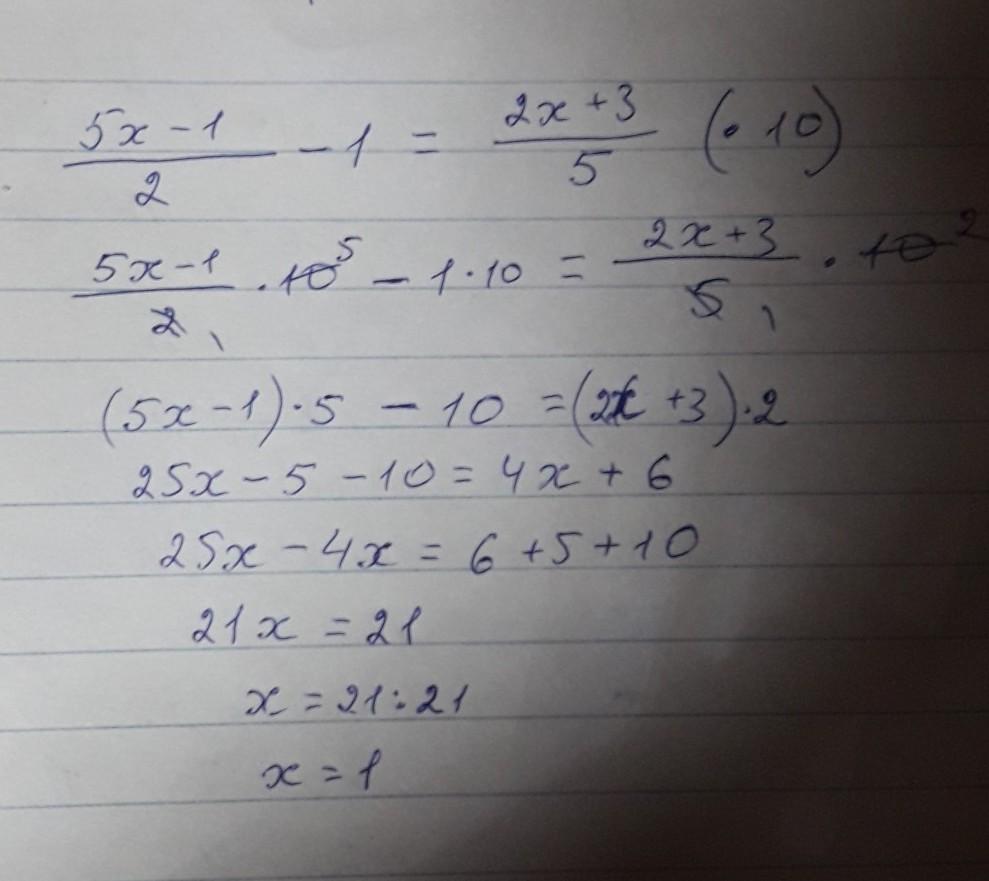 (5x - 1)/2 - 1 = (2x + 3)/5 (· 10)
(5x - 1)/2 1 · 10 5 - 1 · 10 = (2x + 3)/5 1 · 10 2
(5x - 1) · 5 - 10 = (2x + 3) · 2
25x - 5 - 10 = 4x + 6
25x - 4x = 6 + 5 + 10
21x = 21
x = 21 : 21
x = 1